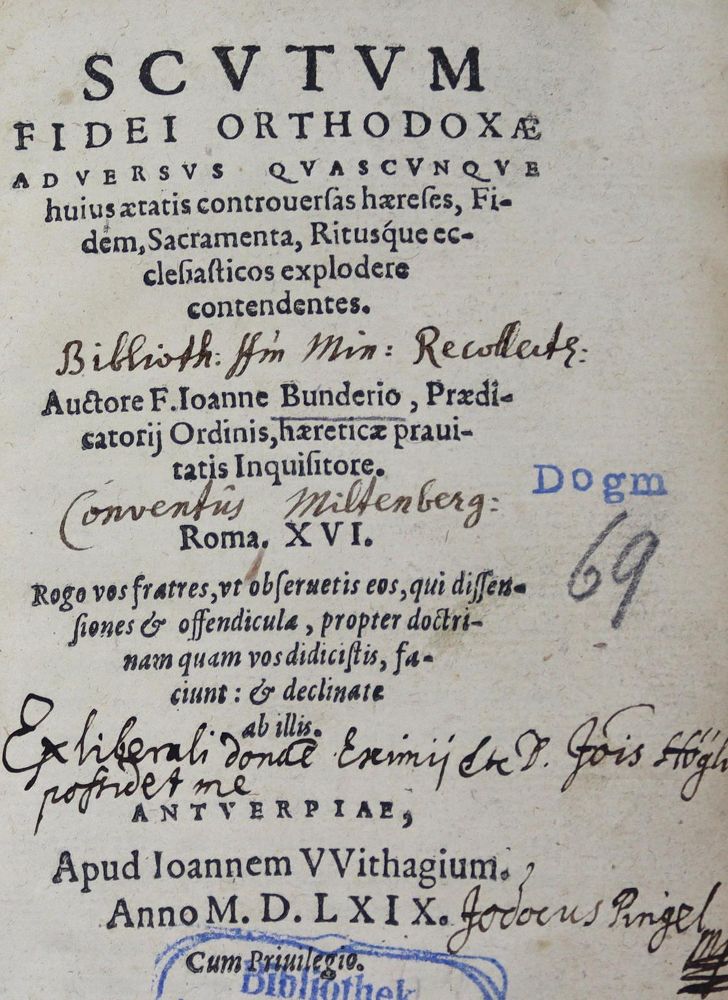 SCVTVM
FIDEI ORTHODOXÆ
ADVERSVS QVASCVNQVE
huius ætatis controuersas hæreses, Fi-
dem, Sacramenta, Ritusq́ue ec-
clesiasticos explodere
contendentes.
Biblioth: ffm Min: Recollect:
Auctore F. Ioanne Bunderio, Prædi-
catorij Ordinis, hæreticæ praui-
tatis Inquisitore.
Dogm
Conventûs Miltenberg:
Roma. XVI.
69
Rogo vos fratres, vt obseruetis eos, qui dissen-
siones & offendicula, propter doctri-
nam quam vos didicistis, fa-
ciunt: & declinate
ab illis.
Ex liberali donac Eximij D. Jois Högli
possidet me
ANTVERPIAE,
Apud Ioannem VVithagium.
Anno M. D. LXIX.
Jodocus Pingel
Cum Priuilegio.
Bibliothek